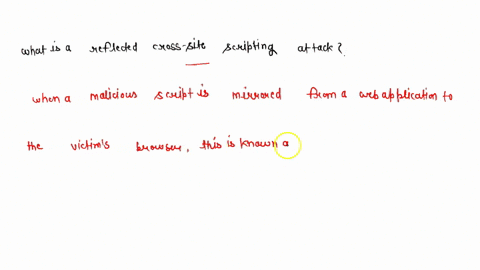 what is a reflected cross-site scripting attack?
when a malicious script is mirrored from a web application to
the victim's browser, this is known a